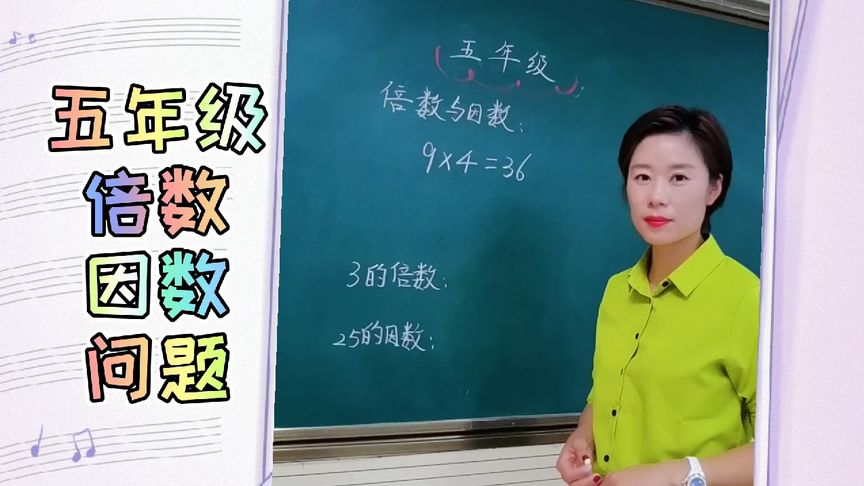 五年级
倍数
因数
问题
五年级
倍数与因数:
9×4=36
3的倍数:
25的因数: